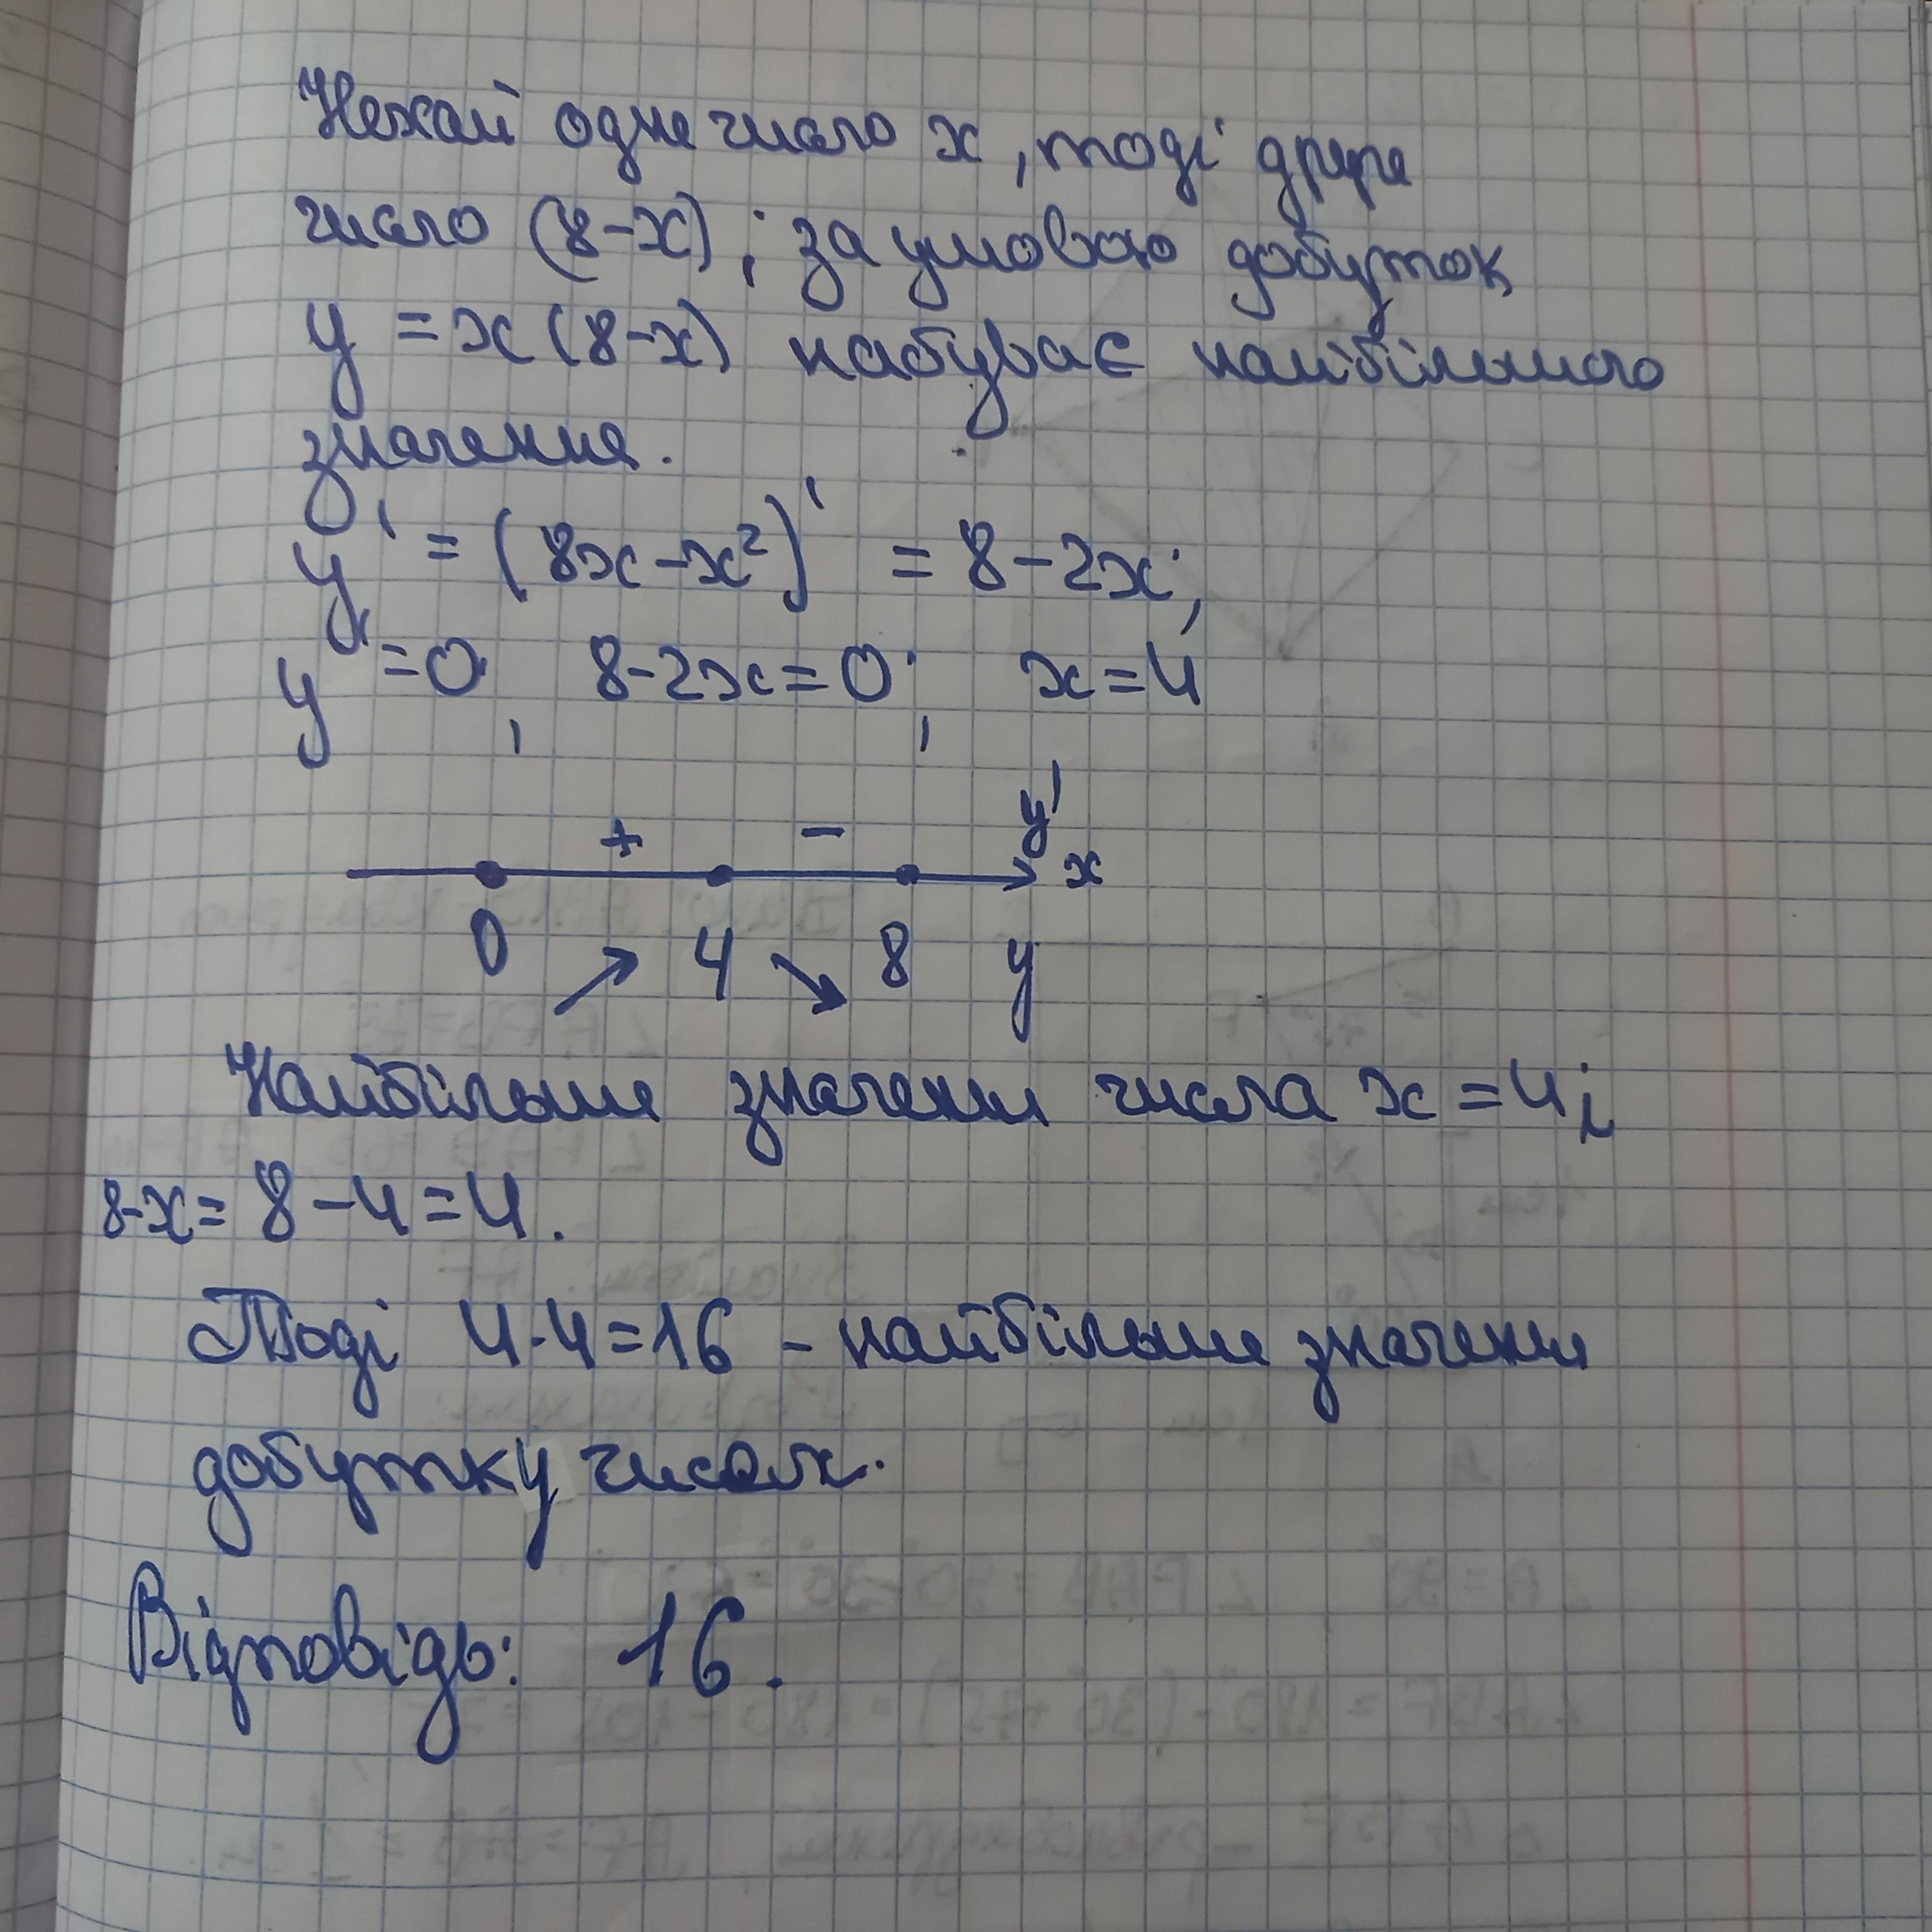 Нехай одне число x, тоді друге
число (8-x); за умовою добуток
y = x(8-x) набуває найбільшого
значення.
y' = (8x-x²)' = 8-2x;
y' = 0; 8-2x=0; x=4
+ - y'
x
0 ↗ 4 ↘ 8 y
Найбільше значення числа x=4;
8-x= 8-4=4.
Тоді 4·4=16 - найбільше значення
добутку чисел.
Відповідь: 16.